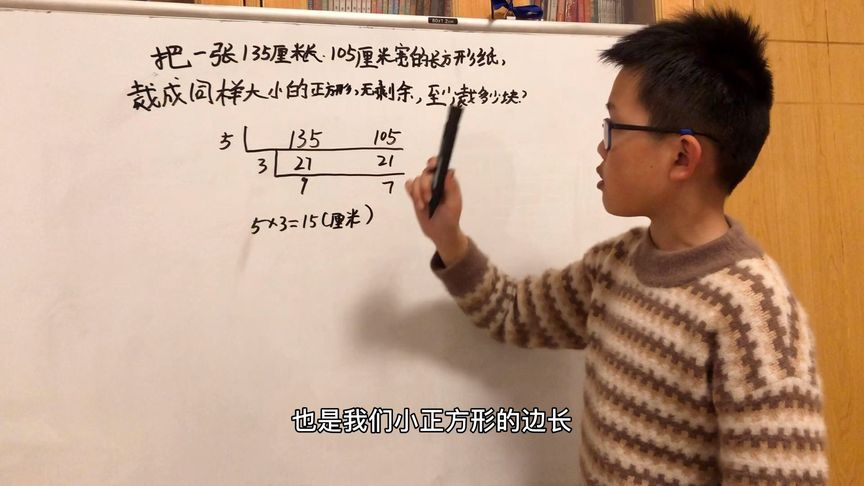 把一张135厘米长、105厘米宽的长方形纸,
裁成同样大小的正方形,无剩余,至少裁多少块?
5 135 105
3 27 21
9 7
5×3=15(厘米)
也是我们小正方形的边长